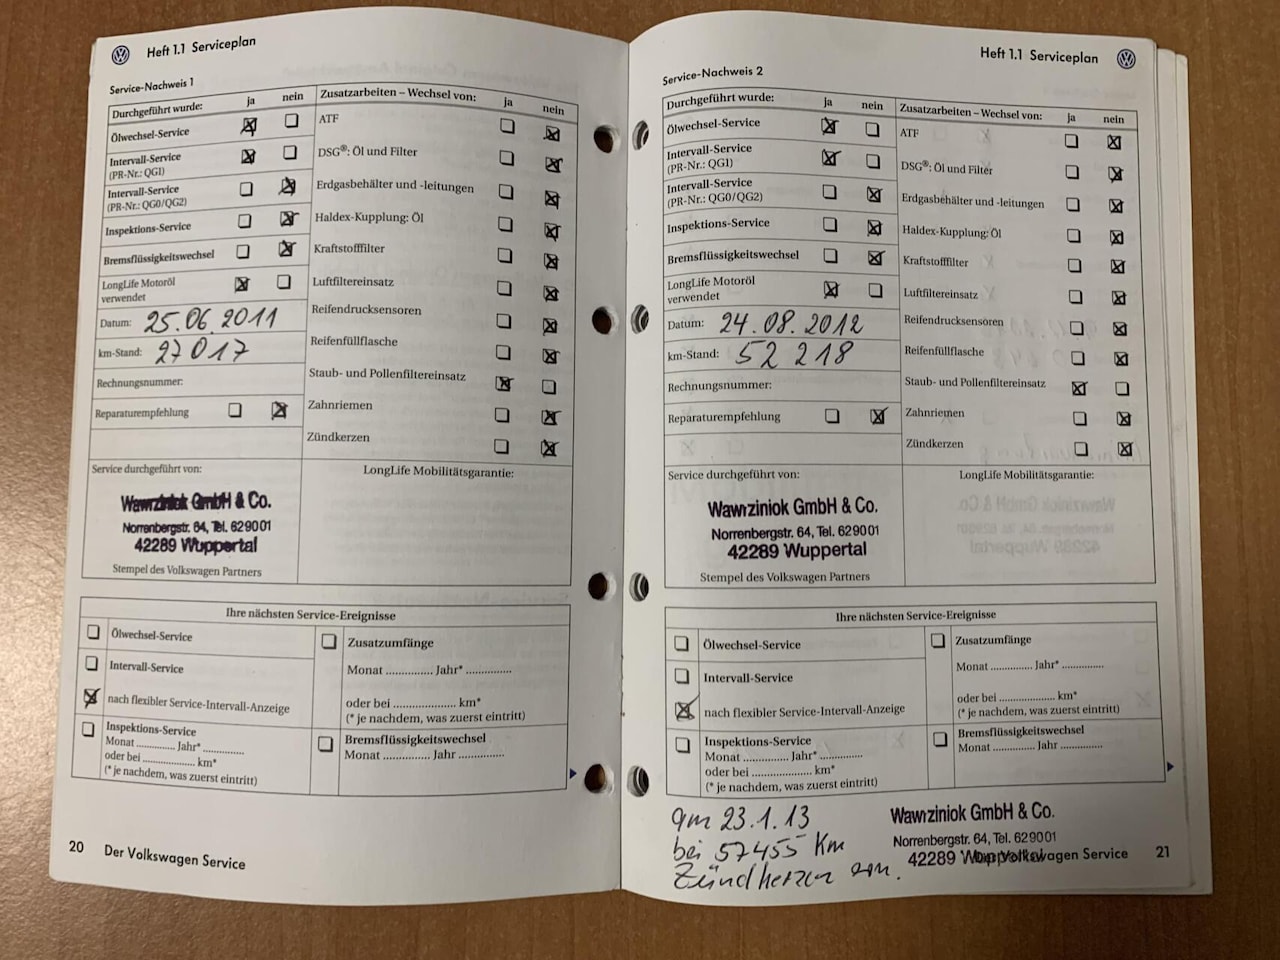 Heft 1.1 Serviceplan
Service-Nachweis 1
Durchgeführt wurde: ja nein
Ölwechsel-Service
Intervall-Service
(PR-Nr.: QG1)
Intervall-Service
(PR-Nr.: QG0/QG2)
Inspektions-Service
Bremsflüssigkeitswechsel
LongLife Motoröl
verwendet
Datum: 25.06.2011
km-Stand: 27017
Rechnungsnummer:
Reparaturempfehlung
Zusatzarbeiten – Wechsel von: ja nein
ATF
DSG®: Öl und Filter
Erdgasbehälter und -leitungen
Haldex-Kupplung: Öl
Kraftstofffilter
Luftfiltereinsatz
Reifendrucksensoren
Reifenfüllflasche
Staub- und Pollenfiltereinsatz
Zahnriemen
Zündkerzen
Service durchgeführt von:
Wawrziniok GmbH & Co.
Norrenbergstr. 64, Tel. 629001
42289 Wuppertal
Stempel des Volkswagen Partners
LongLife Mobilitätsgarantie:
Ihre nächsten Service-Ereignisse
Ölwechsel-Service
Intervall-Service
nach flexibler Service-Intervall-Anzeige
Inspektions-Service
Monat ............ Jahr* ............
oder bei ...................... km*
(* je nachdem, was zuerst eintritt)
Zusatzumfänge
Monat ............ Jahr* ............
oder bei .................... km*
(* je nachdem, was zuerst eintritt)
Bremsflüssigkeitswechsel
Monat ............ Jahr ............
20 Der Volkswagen Service
Heft 1.1 Serviceplan
Service-Nachweis 2
Durchgeführt wurde: ja nein
Ölwechsel-Service
Intervall-Service
(PR-Nr.: QG1)
Intervall-Service
(PR-Nr.: QG0/QG2)
Inspektions-Service
Bremsflüssigkeitswechsel
LongLife Motoröl
verwendet
Datum: 24.08.2012
km-Stand: 52 218
Rechnungsnummer:
Reparaturempfehlung
Zusatzarbeiten – Wechsel von: ja nein
ATF
DSG®: Öl und Filter
Erdgasbehälter und -leitungen
Haldex-Kupplung: Öl
Kraftstofffilter
Luftfiltereinsatz
Reifendrucksensoren
Reifenfüllflasche
Staub- und Pollenfiltereinsatz
Zahnriemen
Zündkerzen
Service durchgeführt von:
Wawrziniok GmbH & Co.
Norrenbergstr. 64, Tel. 629001
42289 Wuppertal
Stempel des Volkswagen Partners
LongLife Mobilitätsgarantie:
Ihre nächsten Service-Ereignisse
Ölwechsel-Service
Intervall-Service
nach flexibler Service-Intervall-Anzeige
Inspektions-Service
Monat ............ Jahr* ............
oder bei .................... km*
(* je nachdem, was zuerst eintritt)
Zusatzumfänge
Monat ............ Jahr* ............
oder bei .................... km*
(* je nachdem, was zuerst eintritt)
Bremsflüssigkeitswechsel
Monat ............ Jahr ............
am 23.1.13
bei 57455 Km
Zündkerzen ern.
Wawrziniok GmbH & Co.
Norrenbergstr. 64, Tel. 629001
42289 Wuppertal
Der Volkswagen Service 21